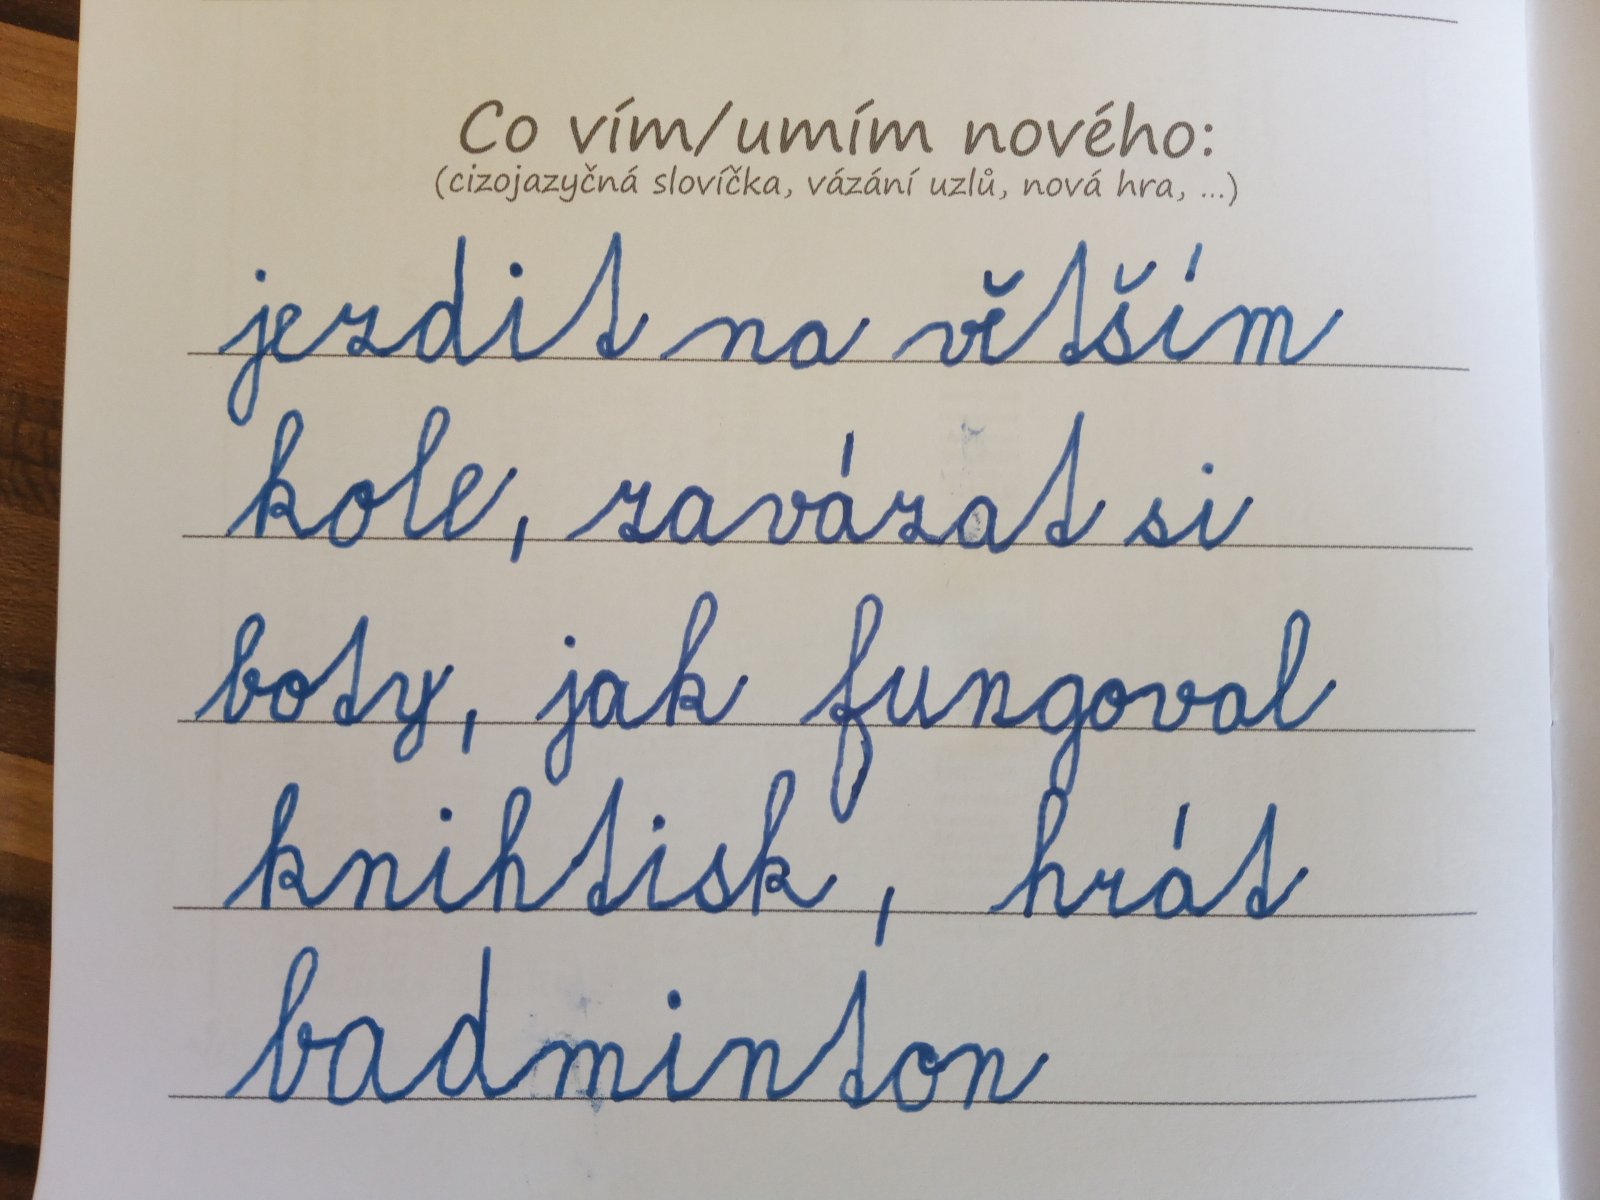 Co vím/umím nového:
(cizojazyčná slovíčka, vázání uzlů, nová hra, ...)
jezdit na větším
kole, zavázat si
boty, jak fungoval
knihtisk, hrát
badminton